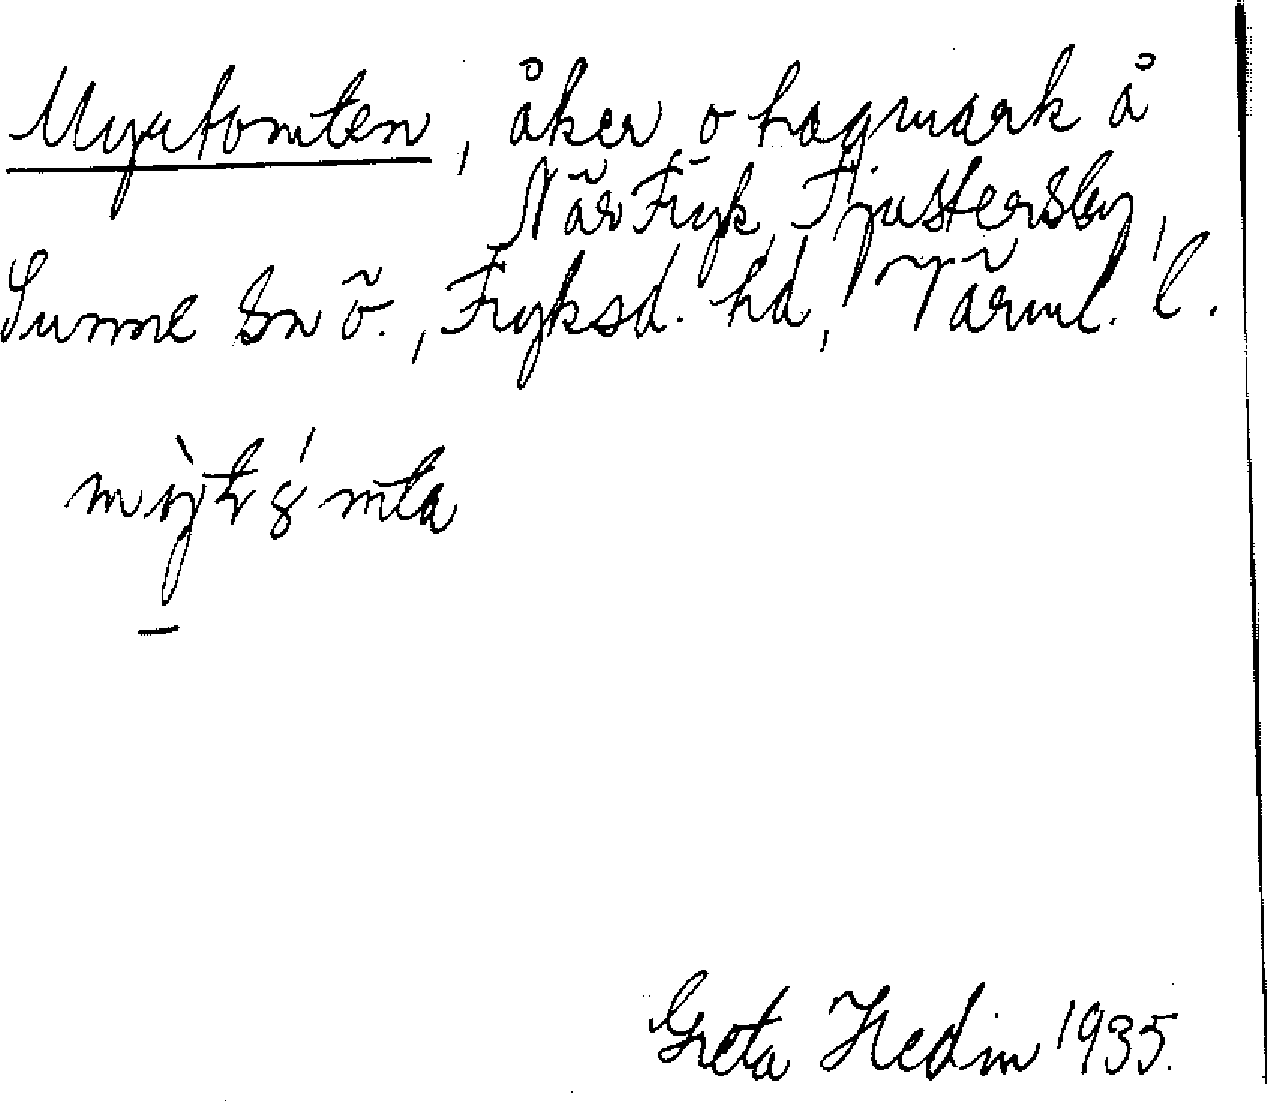 Myrtomten, åker o hagmark å
När Fryk, Fjustersby,
Sunne sn ö., Fryksd. hd, Värml. l.
Greta Hedin 1935.